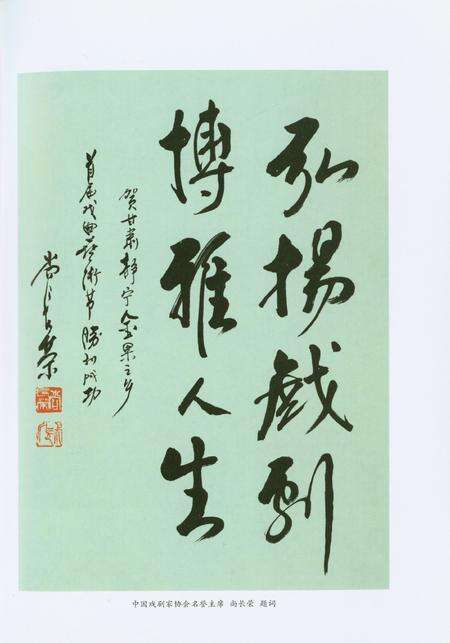 弘揚戲劇
博雅人生
贺甘肃静宁金果之乡
首届戏曲艺术节胜利成功
尚长荣
中国戏剧家协会名誉主席 尚长荣 题词